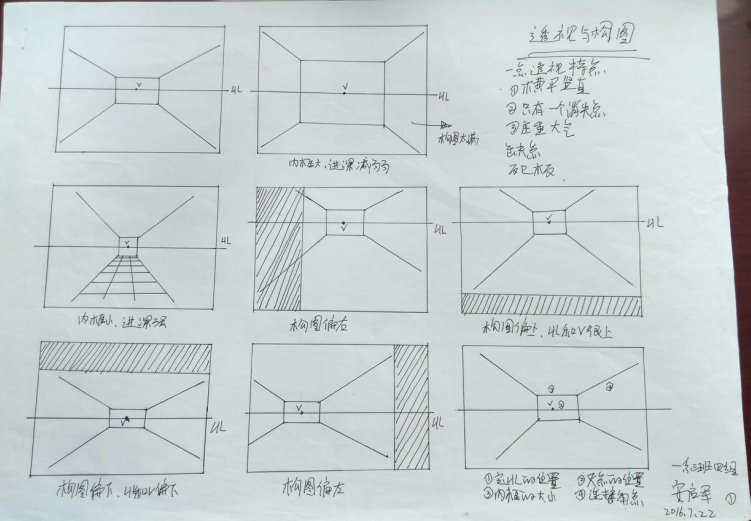 透视与构图
一点透视特点
①横平竖直
②只有一个消失点
③庄重大气
缺点
死板
V
HL
V
HL
构图太满
内框大、进深减弱
V
HL
内框小、进深强
V
HL
构图偏右
V
HL
构图偏上、HL和V偏上
V
HL
构图偏下、HL和V偏下
V
HL
构图偏左
V
①定HL的位置 ②灭点的位置
③内框的大小 ④连接角点
2016.7.22 ①